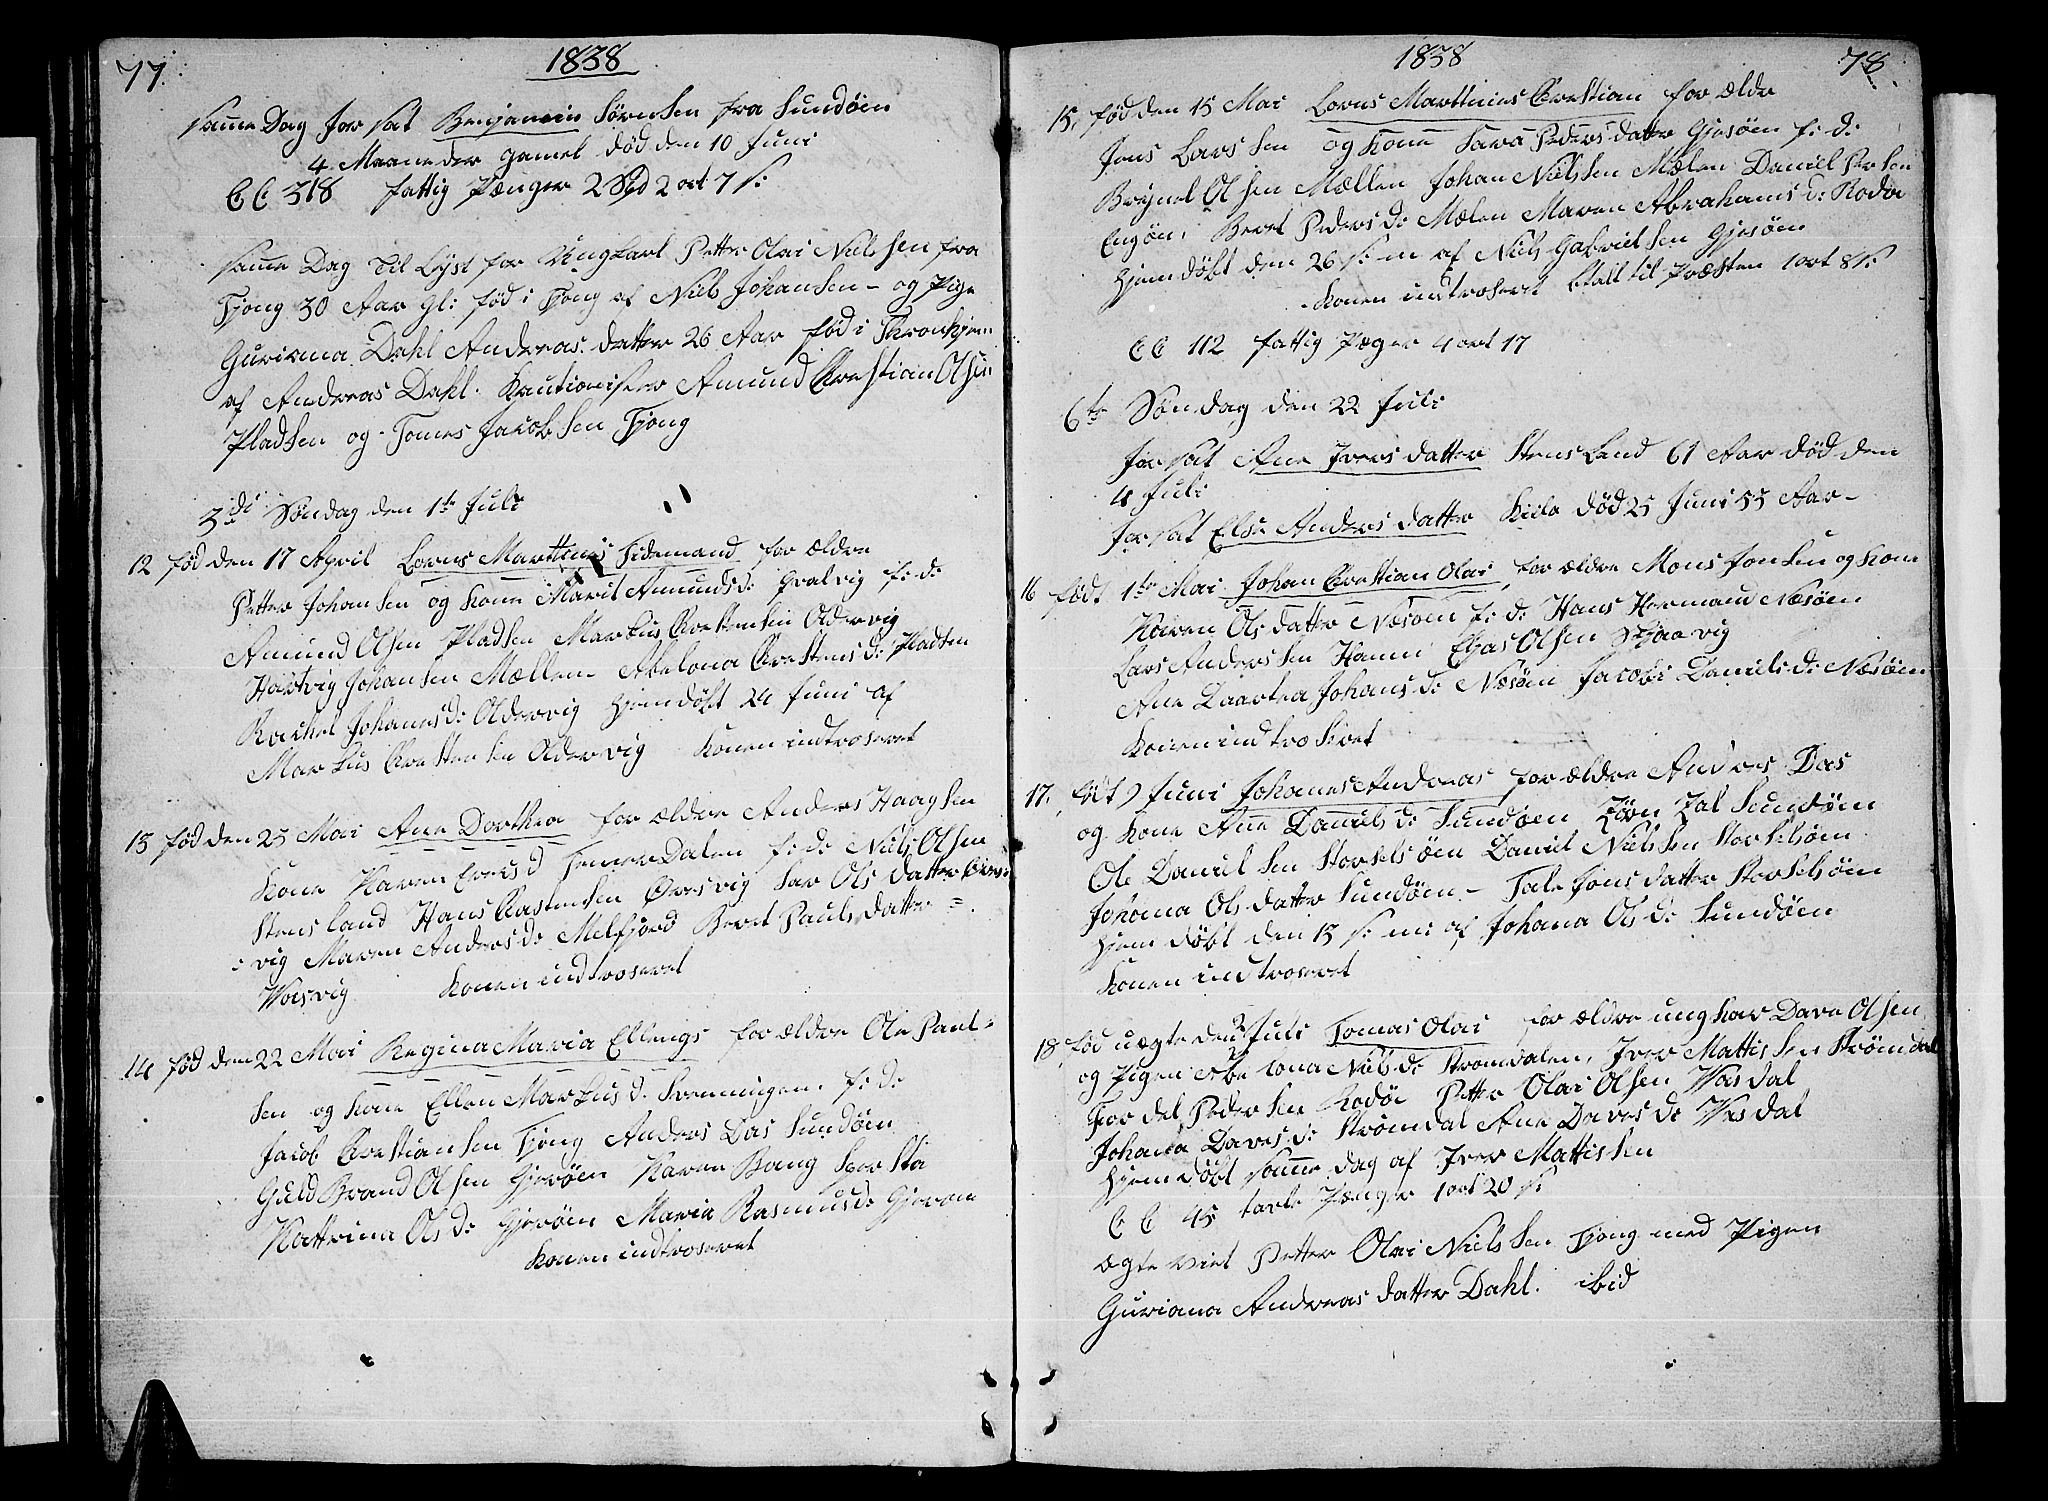 77.
1838
samme Dag Jor sat Benjamin SörenSen fra Sundöen
4 Maaneder gamel död den 10 Juni
C C 318 fattig Pænger 2 Spd 2 ort 7 s:
samme Dag Til Lyst for Ungkarl Petter Olai NielsSen fra
Tjong 30 Aar gl: föd i Tjong af Niels JohanSen - og Pige
Guriana Dahl Andreas datter 26 Aar föd i Thronhjem
af Andreas Dahl. Kautionister Amund Chrestian OlSen
PladSen og Tomes JacobSen Tjong
3di Söndag den 1te Juli
12 föd den 17 April Lorns Marthines Tidemand for ældre
Petter JohanSen og Kone Marit Amunds d: Qvalvig f: d:
Amund OlSen PladSen Markus ChrestenSen Oldervig
Hartvig JohanSen Mællem Abelona Chrestens d: PladSen
Rachel Johanes d: Oldervig Hjemdöbt 24 Juni af
Markus ChrestenSen Oldervig Konen indtroseret
13 föd den 25 Mai Ane Dorthea for ældre Anders HaagSen
Kone Karen Evers d TenerDalen f: d: Niels OlSen
Stensland Hans ChastenSen Öresvig Sar Ols datter Öres=
=vig Maren Anders d: Melfjord Beret Pauls datter =
Worsvig Konen indtroseret
14 föd den 22 Mai Regina Maria Ellengs for ældre Ole Paul=
Sen og Kone Ellen Markus d. Svenningen f: d:
Jacob ChrestianSen Tjong Anders Das Sundöen
GuldBrand OlSen Gjeröen Karen Bang SperSta
Kattrina Ols d: Gjeröen Maria Rasmus d: Gjeroen
Konen indtroseret
1838
78
15. föd den 15 Mai Lorns Marthines Chrestian for ældre
Jens LarsSen og Kone Sara Peders datter Gjesöen f: d:
Brynel OlSen Mællen Johan NielsSen Mælen Daniel PerSen
Engöen, Beret Peders d: Mælen Maren Abrahams d: Rodöe
Hjemdöbt den 26 s: m af Niels GabrielSen Gjesöen
Konen indtroseret btalt til Præsten 1 ort 8 s:
C C 112 fattig Pæger 4 ort 17
6te Söndag den 22 Juli
Jor sat Ane Ivers datter StensLand 61 Aar död den
4 Juli
Jor sat Else Anders datter Kiila död 25 Juni 55 Aar-
16 födt 1te Mai Johan Chrestian Olai, for ældre Mons JonSen og Kone
Karen Ols datter Nesöen f: d: Hans Hermand Nesöen
Lars AndersSen Hamn Elias OlSen Skaavig
Ane Daartea Johans d: Nesöen Jacobi Daniels d: Nesöen
Konen indtroseret
17. födt 7 Juni Johanes Andreas for ældre Andres Das
og Kone Ane Daniels d: Sundöen Jörn Jal Sundöen
Ole DanielSen Storselsöen Daniel NielsSen Storselsöen
Johana Ols datter Sundöen - Tale Jons datter Storselsöen
Hjem döbt den 13 s: m: af Johana Ols d: Sundöen
Konen indtroseret
18 föd uægte den 2 Juli Tomas Olai for ældre ungkar Dave OlSen
og Pigen Abelona Niels d: Stromdalen, Iver MattisSen Strömdal
Fordel PederSen Rodöe Petter Olai OlSen Wasdal
Johana Daves d: Strömdal Ane Daves d: Wasdal
Hjemdöbt samme dag af Iver MattisSen
C C 45 tavle Pænger 1 ort 20 s:
Ægte viet Petter Olai NielsSen Tjong med Pigen
Guriana Andreas datter Dahl. ibid